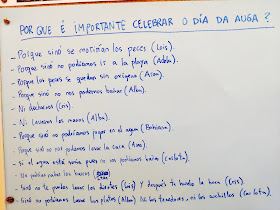 POR QUE É IMPORTANTE CELEBRAR O DÍA DA AUGA?
- Porque sinó se morirían los peces (Lois).
- Porque sinó no podríamos ir a la playa (Adela).
- Porque los peces se quedan sin oxígeno (Aroa).
- Porque sinó no nos podemos bañar (Alba).
- Ni ducharnos (Cris).
- Ni lavarnos las manos (Alba).
- Porque sinó no podríamos jugar en el agua (Bri).
- Porque sinó no nos podemos lavar la cara (Aroa).
- Si el agua está sucia pues no nos podemos bañar (Carlota).
- No podrían nadar los barcos
- Sinó no te puedes lavar los dientes (Luis) Y después te huele la boca (Cris).
- Sinó no podríamos lavar los platos (Alba) Ni los tenedores, ni los cuchillos (Carlota)